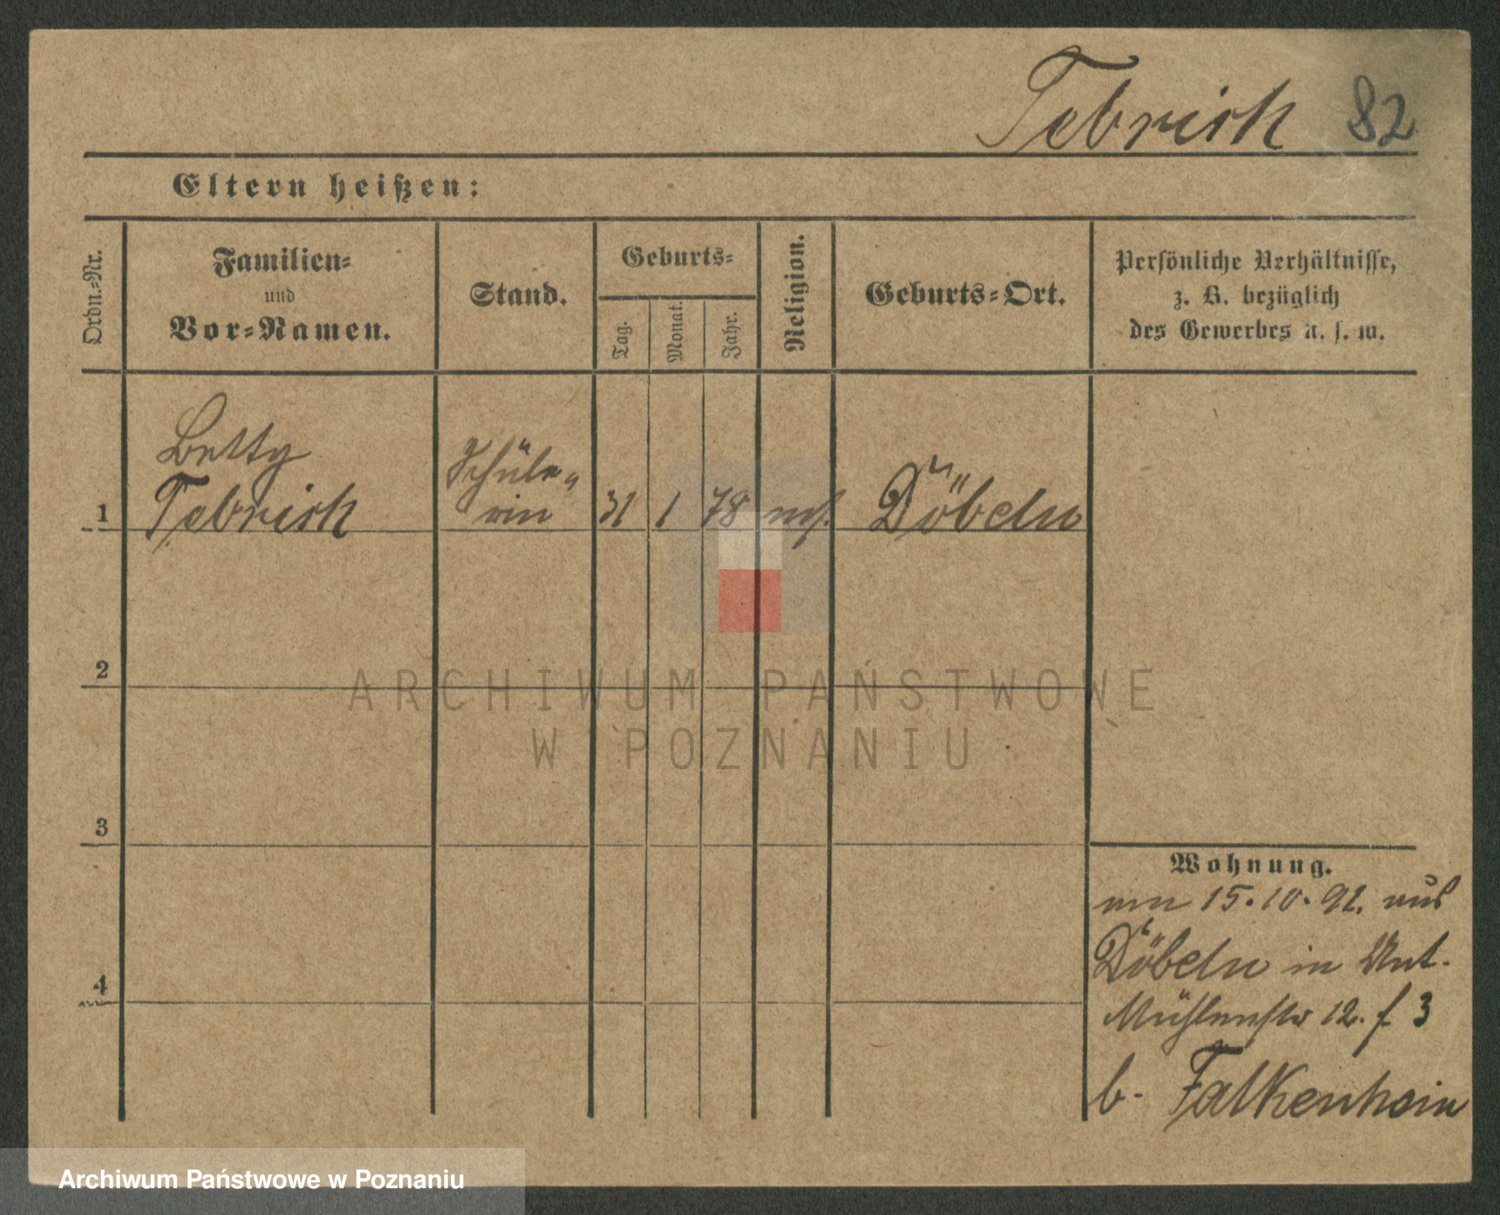 Tebrich 82
Eltern heißen:
Ordn.-Nr.
Familien-
und
Vor-Namen.
Stand.
Geburts-
Tag.
Monat.
Jahr.
Religion.
Geburts-Ort.
Persönliche Verhältnisse,
z. B. bezüglich
des Gewerbes u. s. w.
Betty
Schüle-
1 Tebrich rin 31 1 78 mos. Döbeln
2
ARCHIWUM PAŃSTWOWE
W POZNANIU
3
Wohnung.
am 15.10.92. aus
Döbeln in Unt-
4
Mühlenstr 12. f 3
b. Falkenhain
Archiwum Państwowe w Poznaniu